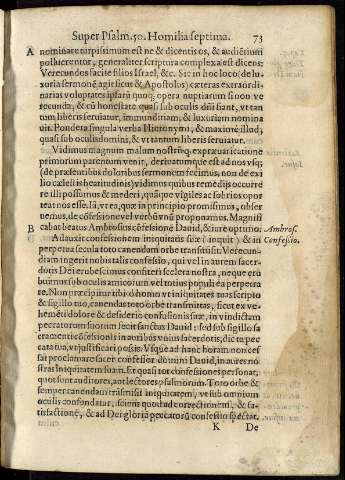 Super Psalm. 50. Homilia septima. 73
A nominate turpissimum est ne & dicentis os, & audiētium
polluerentur, generaliter scriptura complexa est dicens:
Verecundos facite filios Israel, &c. Sic in hoc loco (de lu-
xuria sermonē agit sicut & Apostolus) cæteras extraordi-
narias voluptates ipsarū quoq; opera nuptiarum si nō ve
recunda, & cū honestate quasi sub oculis dñi fiant, vt tan
tum liberis seruiatur, immunditiam, & luxuriam nomina
uit. Pondera singula verba Hieronymi, & maximè illud,
quasi sub oculis domini, & vt tantum liberis seruiatur.
Vidimus magnum malum nostrūq; ex præuaricatione
primorum parentum venit, deriuatumque est ad nos vsq;
(de præsentibus doloribus sermonem fecimus, non de exi
lio cælestis beatitudinis) vidimus quibus remedijs occurre
re illi possumus & mederi, quàque vigiles ac sobrios opor
teat nos esse. Iā, vt ea, quæ in principio promisimus, obser
uemus, de cōfessione vel verbū vnū proponamus. Magnifi
B cabat beatus Ambrosius cōfessionē Dauid, & iure optimo. Ambros.
Adauxit confessionem iniquitatis suæ (inquit) & in Confessio.
perpetua secula toto canendam orbe transmisit. Verecun-
diam ingerit nobis talis confessio, qui vel in aurem sacer-
dotis Dei erubescimus confiteri scelera nostra, neque eru
buimus sub oculis amicorum vel totius populi ea perpetra
re. Non præcipitur tibi ô homo vt iniquitates tuas scripio
& sigillo tuo, canendas toto orbe transmittas, sicut ex ve-
hemēti dolore & desiderio confusionis suæ, in vindictam
peccatorum suorum fecit sanctus Dauid: sed sub sigillo sa
cramenti cōfessionis in auribus vnius sacerdotis, dic tu pec
cata tua, vt iustificari possis. Vsque ad hanc horam non ces
sat proclamare sacer confessor domini Dauid, in aures no
stras iniquitatem suam. Et quasi tot confessiones personat,
quot sunt auditores, aut lectores psalmorum. Toto orbe &
semper canendam trāsmisit iniquitatem, vel sub omnium
oculis confunditur, sciens quod ad correctionem, & sa-
tisfactionē, & ad Dei gloriā peccatorū confessio spectat.
K De